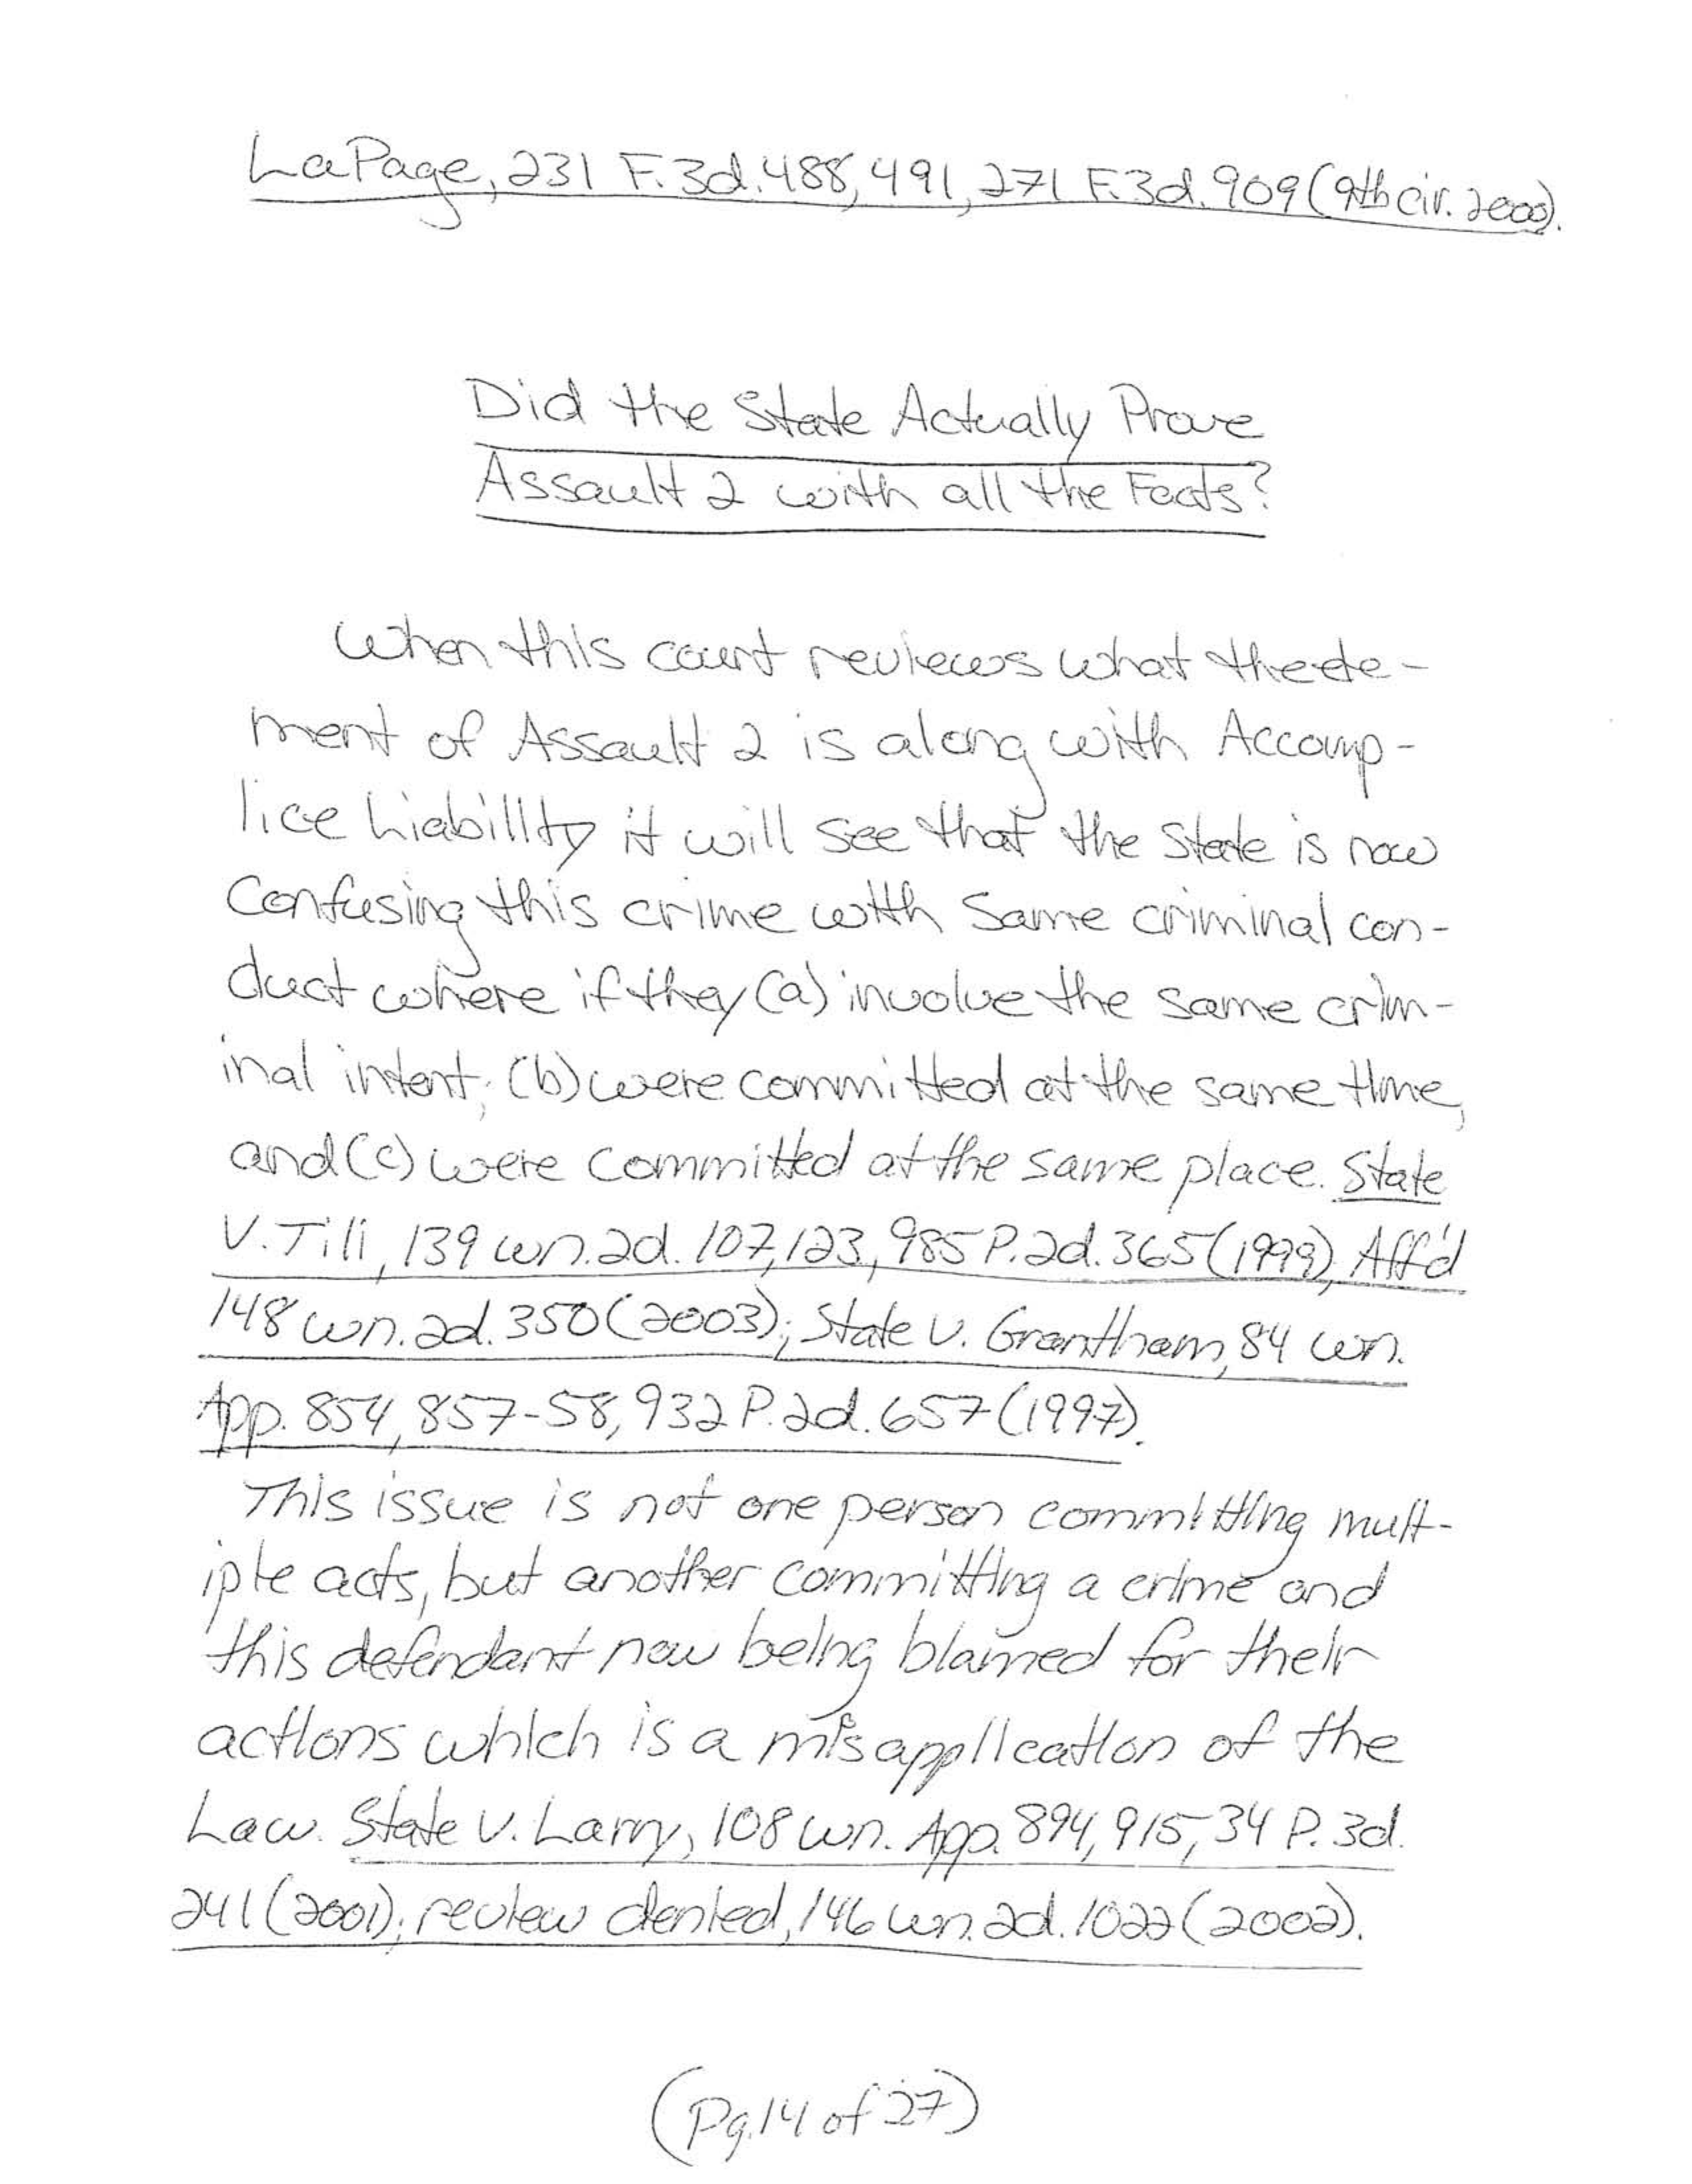 LaPage, 231 F.3d. 488, 491, 271 F.3d. 909 (9th cir. 2000).
Did the State Actually Prove
Assault 2 with all the Facts?
When this court reviews what the ele-
ment of Assault 2 is along with Accomp-
lice Liabillity it will see that the State is now
Confusing this crime with Same criminal con-
duct where if they (a) involve the same crim-
inal intent; (b) were committed at the same time,
and (c) were committed at the same place. State
V. Tili, 139 wn.2d. 107, 123, 985 P.2d. 365 (1999), Aff'd
148 wn.2d. 350 (2003); State v. Grantham, 84 wn.
App. 854, 857-58, 932 P.2d. 657 (1997).
This issue is not one person committing mult-
iple acts, but another committing a crime and
this defendant now being blamed for their
actions which is a misapplication of the
Law. State v. Larry, 108 wn. App. 894, 915, 34 P. 3d.
241 (2001); review denied, 146 wn.2d. 1022 (2002).
(Pg.14 of 27)